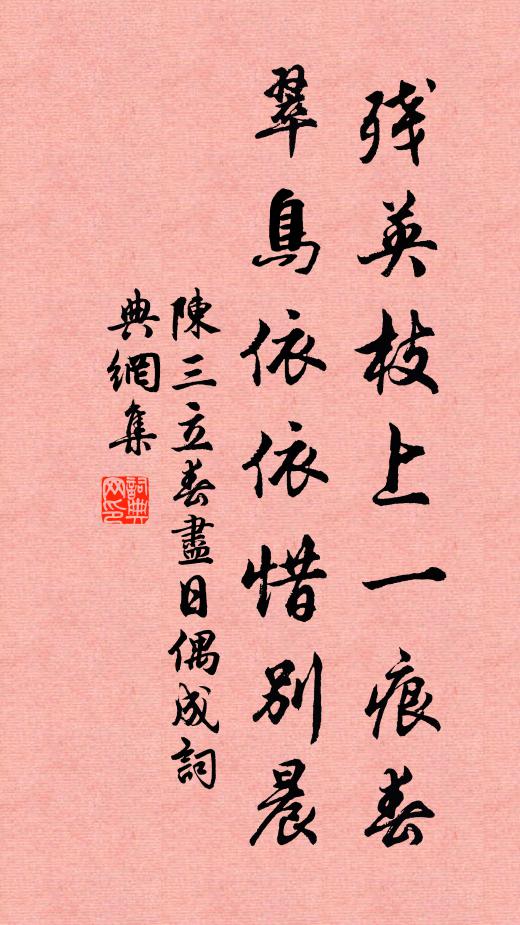 残英枝上一痕春
翠鳥依依惜別晨
陳三立春盡日偶成詞
典網集
詞典網印